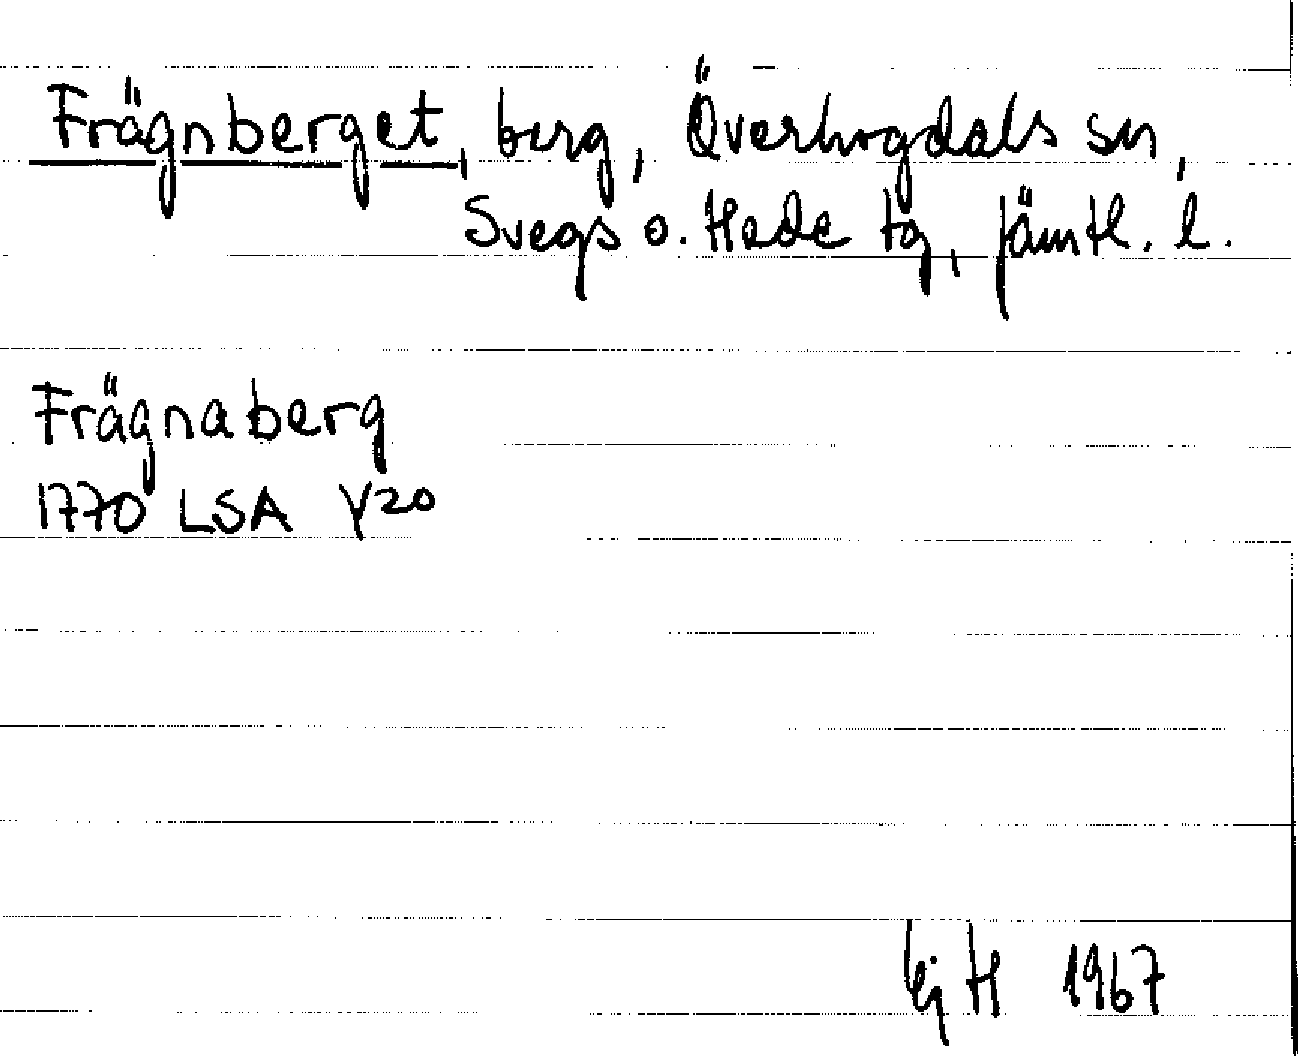 Frägnberget, berg, Överhogdals sn,
Svegs o. Hede tg, Jämtl. l.
Frägnaberg
1770 LSA Y20
1967